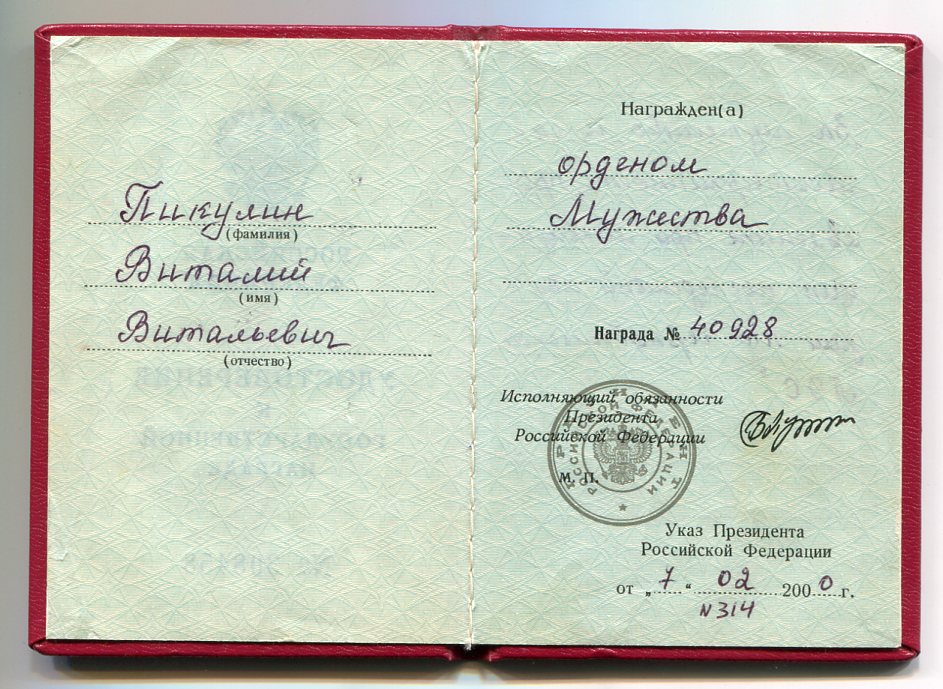 Пикулин
(фамилия)
Виталий
(имя)
Витальевич
(отчество)
Награжден(а)
орденом
Мужества
Награда № 40928
Исполняющий обязанности
Президента
Российской Федерации
М. П.
ПРЕЗИДЕНТ
РОССИЙСКОЙ ФЕДЕРАЦИИ
Указ Президента
Российской Федерации
от „ 7 “ 02 2000 г.
№314